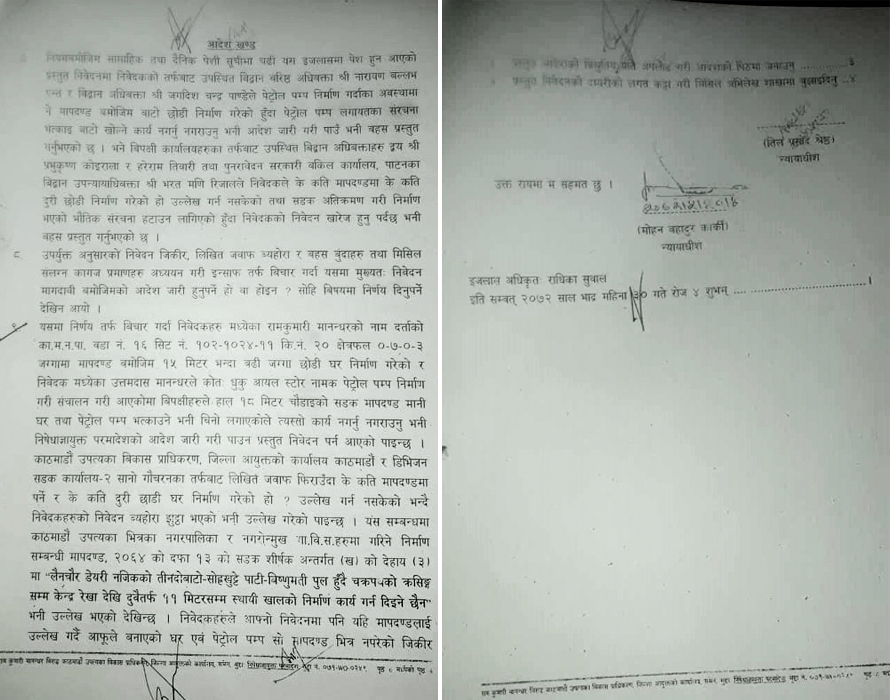 आदेश खण्ड
नियमबमोजिम साप्ताहिक तथा दैनिक पेशी सूचीमा चढी यस इजलासमा पेश हुन आएको
प्रस्तुत निवेदनमा निवेदकको तर्फबाट उपस्थित विद्वान वरिष्ठ अधिवक्ता श्री नारायण बल्लभ
पन्त र विद्वान अधिवक्ता श्री जगदिश चन्द्र पाण्डेले पेट्रोल पम्प निर्माण गर्दाका अवस्थामा
नै मापदण्ड बमोजिम बाटो छोडी निर्माण गरेको हुँदा पेट्रोल पम्प लगायतका संरचना
भत्काइ बाटो खोल्ने कार्य नगर्नु नगराउनु भनी आदेश जारी गरी पाउँ भनी बहस प्रस्तुत
गर्नुभएको छ । भने बिपक्षी कार्यालयहरुका तर्फबाट उपस्थित विद्वान अधिवक्ताहरु द्वय श्री
प्रभुकृष्ण कोइराला र हरेराम तिवारी तथा पुनरावेदन सरकारी वकिल कार्यालय, पाटनका
बिद्वान उपन्यायाधिवक्ता श्री भरत मणि रिजालले निवेदकले के कति मापदण्डमा के कति
दुरी छोडी निर्माण गरेको हो उल्लेख गर्न नसकेको तथा सडक अतिक्रमण गरी निर्माण
भएको भौतिक संरचना हटाउन लागिएको हुँदा निवेदकको निवेदन खारेज हुनु पर्दछ भनी
बहस प्रस्तुत गर्नुभएको छ ।
८ उपर्युक्त अनुसारको निवेदन जिकीर, लिखित जवाफ ब्यहोरा र बहस बुंदाहरु तथा मिसिल
संलग्न कागज प्रमाणहरु अध्ययन गरी इन्साफ तर्फ बिचार गर्दा यसमा मुख्यतः निवेदन
मागदावी बमोजिमको आदेश जारी हुनुपर्ने हो वा होइन ? सोहि बिषयमा निर्णय दिनुपर्ने
देखिन आयो ।
९ यसमा निर्णय तर्फ बिचार गर्दा निवेदकहरु मध्येका रामकुमारी मानन्धरको नाम दर्ताको
का.म.न.पा. वडा नं. १६ सिट नं. १०२-१०२४-११ कि.नं. २० क्षेत्रफल ०-७-०-३
जग्गामा मापदण्ड बमोजिम १५ मिटर भन्दा बढी जग्गा छोडी घर निर्माण गरेको र
निवेदक मध्येका उत्तमदास मानन्धरले कोतः धुकु आयल स्टोर नामक पेट्रोल पम्प निर्माण
गरी संचालन गरी आएकोमा बिपक्षीहरुले हाल १८ मिटर चौडाइको सडक मापदण्ड मानी
घर तथा पेट्रोल पम्प भत्काउने भनी चिनो लगाएकोले त्यस्तो कार्य नगर्नु नगराउनु भनी
निषेधाज्ञायुक्त परमादेशको आदेश जारी गरी पाउन प्रस्तुत निवेदन पर्न आएको पाइन्छ ।
काठमाडौं उपत्यका बिकास प्राधिकरण, जिल्ला आयुक्तको कार्यालय काठमाडौं र डिभिजन
सडक कार्यालय-२ सानो गौचरनका तर्फबाट लिखित जवाफ फिराउँदा के कति मापदण्डमा
पर्ने र के कति दुरी छाडी घर निर्माण गरेको हो ? उल्लेख गर्न नसकेको भन्दै
निवेदकहरुको निवेदन ब्यहोरा झुठ्ठा भएको भनी उल्लेख गरेको पाइन्छ । यस सम्बन्धमा
काठमाडौं उपत्यका भित्रका नगरपालिका र नगरोन्मुख गा.वि.स.हरुमा गरिने निर्माण
सम्बन्धी मापदण्ड, २०६४ को दफा १३ को सडक शीर्षक अन्तर्गत (ख) को देहाय (३)
मा "लैनचौर डेयरी नजिकको तीनदोबाटो-सोह्रखुट्टे पाटी-विष्णुमती पुल हुँदै चक्रपथको क्रसिङ्ग
सम्म केन्द्र रेखा देखि दुबैतर्फ ११ मिटरसम्म स्थायी खालको निर्माण कार्य गर्न दिइने छैन"
भनी उल्लेख भएको देखिन्छ । निवेदकहरुले आफ्नो निवेदनमा पनि यहि मापदण्डलाई
उल्लेख गर्दै आफूले बनाएको घर एवं पेट्रोल पम्प सो मापदण्ड भित्र नपरेको जिकीर
प्रस्तुत आदेशको विद्युतिय प्रति अपलोड गरी आदेशको पिठमा जनाउनु ३
प्रस्तुत निवेदनको दायरीको लगत कट्टा गरी मिसिल अभिलेख शाखामा बुझाइदिनु ..४
(तिल प्रसाद श्रेष्ठ)
न्यायाधीश
उक्त रायमा म सहमत छु ।
(मोहन बहादुर कार्की)
न्यायाधीश
इजलास अधिकृतः राधिका सुवाल
इति सम्बत् २०७२ साल भाद्र महिना ३० गते रोज ४ शुभम् ....।